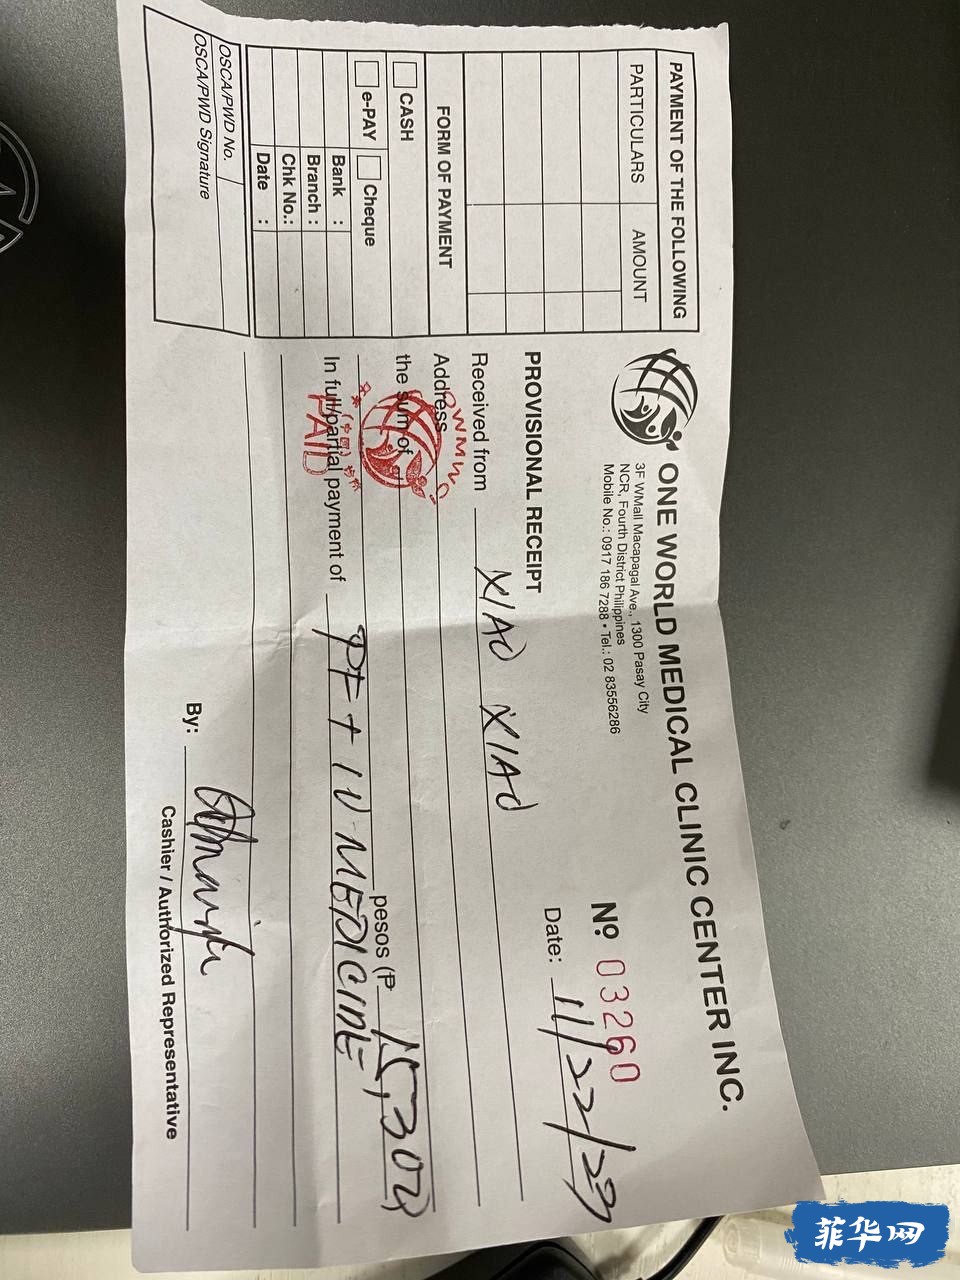 PAYMENT OF THE FOLLOWING
PARTICULARS AMOUNT
FORM OF PAYMENT
CASH
e-PAY Cheque
Bank :
Branch :
Chk No.:
Date :
OSCA/PWD No.
OSCA/PWD Signature
ONE WORLD MEDICAL CLINIC CENTER INC.
3F WMall Macapagal Ave., 1300 Pasay City
NCR, Fourth District Philippines
Mobile No.: 0917 186 7288 • Tel.: 02 83556286
Nº 03260
PROVISIONAL RECEIPT Date: 11/22/23
Received from XIAO XIAO
Address
the sum of
pesos (₱ 15,300
In full/partial payment of PF + IV MEDICINE
OWMW
PAID
By:
Cashier / Authorized Representative
菲华网